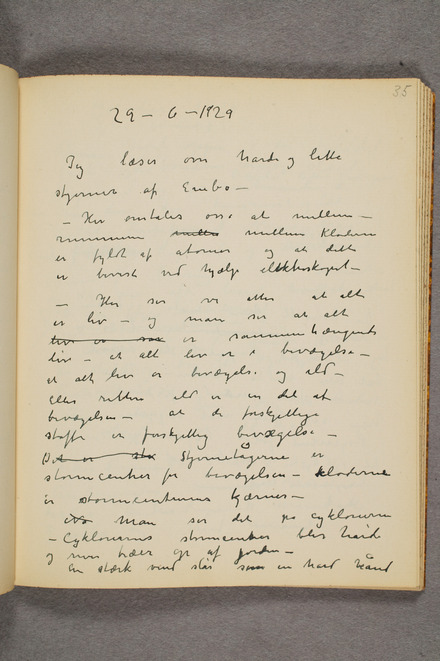 35
29 – 6 – 1929
Jeg læser om harde og lette
stjerner af Embo –
– Her omtales osse at mellem –
rummene mellem kloderne
er fyldt af atomer og at dette
er bevist ved hjælp elektroskopet –
– Her ser vi atter at alt
er liv – og man ser at alt
liv er som er sammenhængende
liv – at alt liv er i bevægelse –
at alt liv er bevægelse og ild –
eller rettere ild er en del af
bevægelsen – at de forskjellige
stoffer er forskjellig bevægelse –
Det er Stjernetågerne er
stormcentrer for bevægelsen – kloderne
er stormcentrumes kjærner –
man ser det på cyklonerne
– Cyklonernes stormcenter blir hårdt
og river træer op af jorden –
En stærk vind slår som en hard hånd